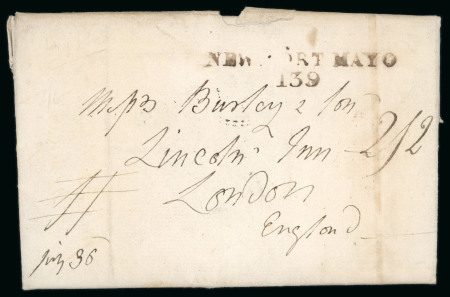 NEWPORT MAYO
139
Messrs Burley & Son
Lincolns Inn 2/2
London
England